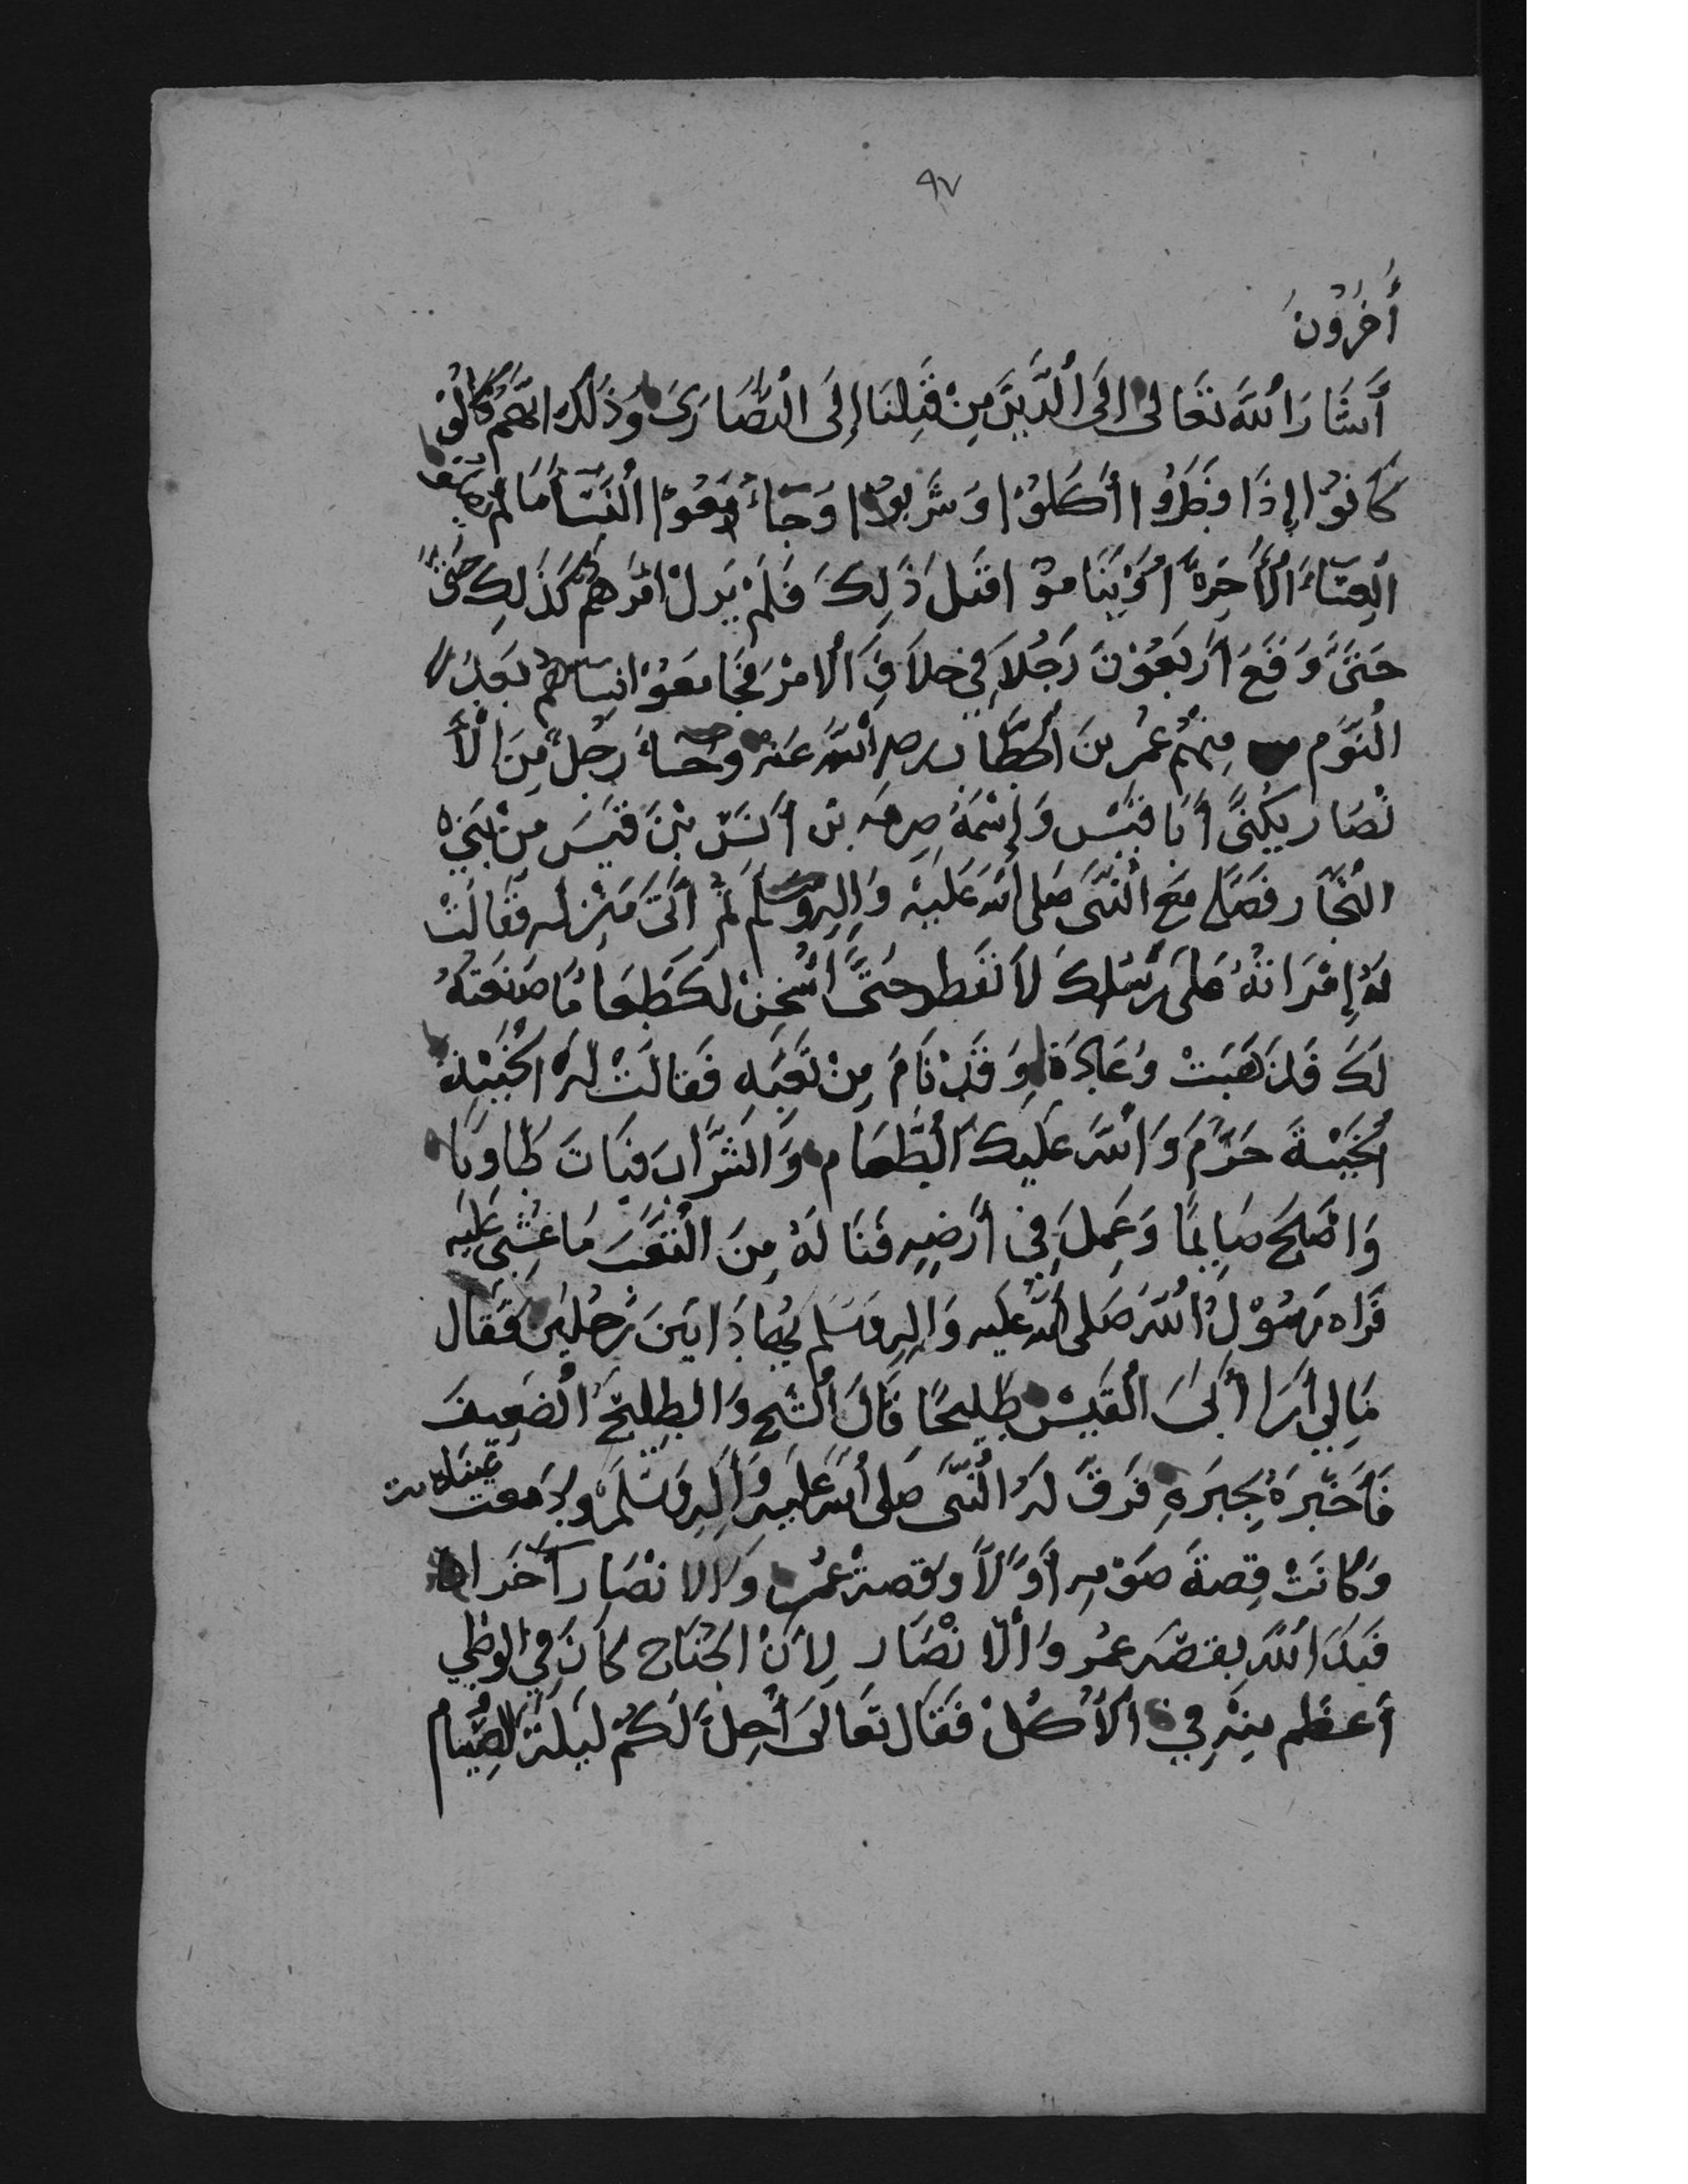 ٩٧
أُخَرُوْنَ
أَشَارَ اللّٰهَ تَعَالى الَى الَّذِيْنَ مِنْ قَبْلِنَا إِلَى النَّصَارَى وَذَلَكَ انَّهُمْ كَانُوْ
كَانوْا إِذَا فَطَرُوا أَكَلُوْا وَشَرَبُوا وَجَاءُ مَعُوْا النَّسَأ مَا لَمْ
العِشَاءَ الأَخِرِةُ اوْ يَنَامُوْ اقَبَلَ ذَلِكَ فَلَمْ يَزلْ امْرَهُمْ كَذَلِكِ حَتَّى
حَتَىَّ وَقَعَ اَرَبَعُوْنَ رَجُلاَ فِي خلاَفِ الَامْرَ فَجَامَعَوُ انِسَاهُمْ بَعدَ
النَوَّم مِنْهُم عُمر بنَ الخَطَّاب رضي اللّٰه عَنه وَجَاءَ رَجُلٌ مِنَ الْأَ
نْصَار يُكنَىَّ أَبَا قَيْس وَإِسْمَهُ صِرمَه بن أَنَسْ بْنَ قَيْسَ مِنْ بَنَيْ
النُجَّار فَصَلَّى مَعَ النَّبَّى صَلى اللّٰه عَلَيْهِ وَالِهِ وَسَلَم ثُمَّ أَتَى مَنْزِلَه فَقَالَتْ
لَهُ إِمْرَاتهُ عَلَى رَسْلِكَ لاَ تَفطر حَتَّى أسْخِنَ لَكَ طَعَامًا صَنَعَتهُ
لَكَ فَذَهَبَتْ وَعَادَة وَقَدْ نَامَ مِنْ تَعَبِهِ فَقالَتْ لَهُ الْخَيْبَة
الْخَيْبَةَ حَرَّمَ وَاللّٰه عَلَيكَ الطَّعَام وَالشَّرَّابَ فبَاتَ طَاوِيًا
وَاصْبَحَ صَايِمًا وَعَمِلَ فِي أَرَضِهِ فَنَا لَهُ مِنَ التَّعَب مَا غُشِيَ عَلَيه
فَرَاه رَسُوْلُ اللّٰه صَلى اللّٰه عَلَيه وَالِهِ وَسَلَم يُهَادَا بَينَ رَجُلَيْن فَقَال
مَالِي أَرَا أَبَى القَيْس طَلِيحًا قَالَ الشَيخ وَالطلِيْحَ الْضَعِيفَ
فَأَخَبَرَهُ بِخِبَرَهِ فَرَقَّ لَهُ النَّبَّى صَلى اللّٰه عَليه وَألِهِ وَسَلَمْ وَدَمعت عَينَاه
وَكَانَتْ قِصةَ صَوْمِهِ أَوَّلاً وَقِصة عُمَر وَالانْصَار آخَرا
فَبَدَا اللّٰهَ بِقِصْه عمُر وَالّا نْصَار لِأَنْ الجُنَاح كاَنَ فِي الوَطي
أَعظم مِنْهِ فِي الأَكْلْ فَقَالَ تَعَالَى أُحِلَّ لَكُمْ لَيلَة الصِّيَام